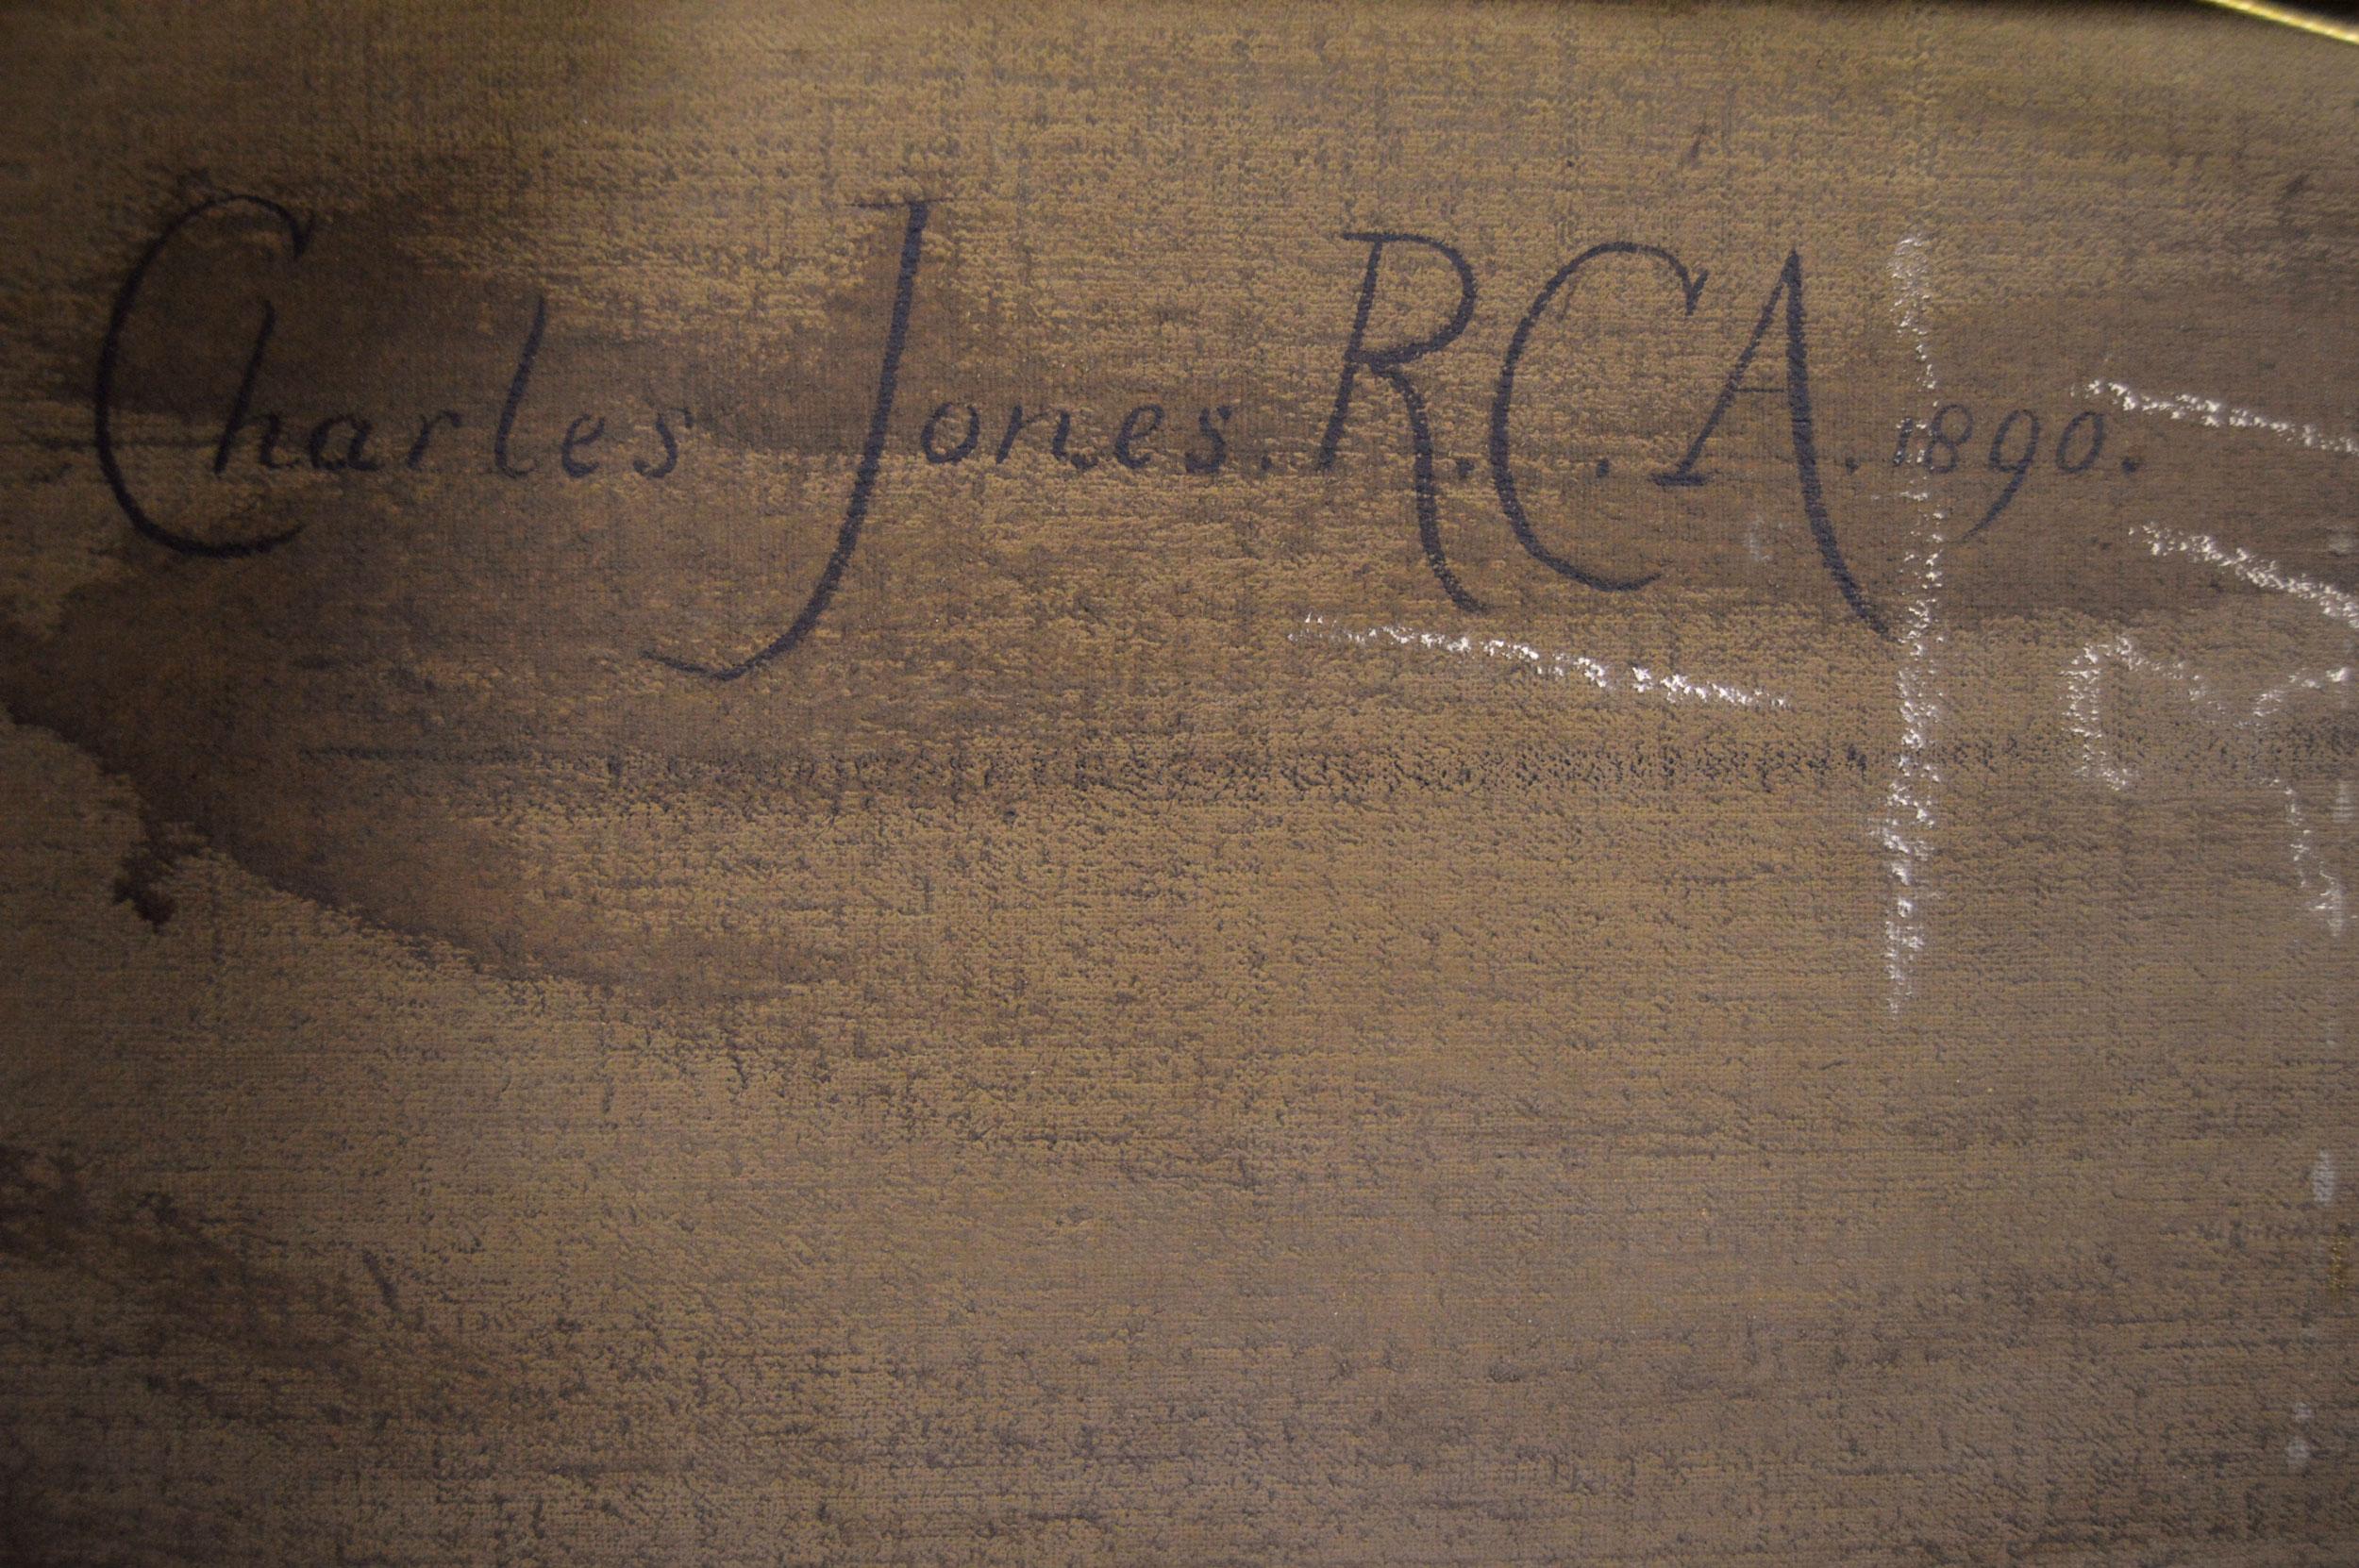 Charles Jones. R.C.A. 1890.